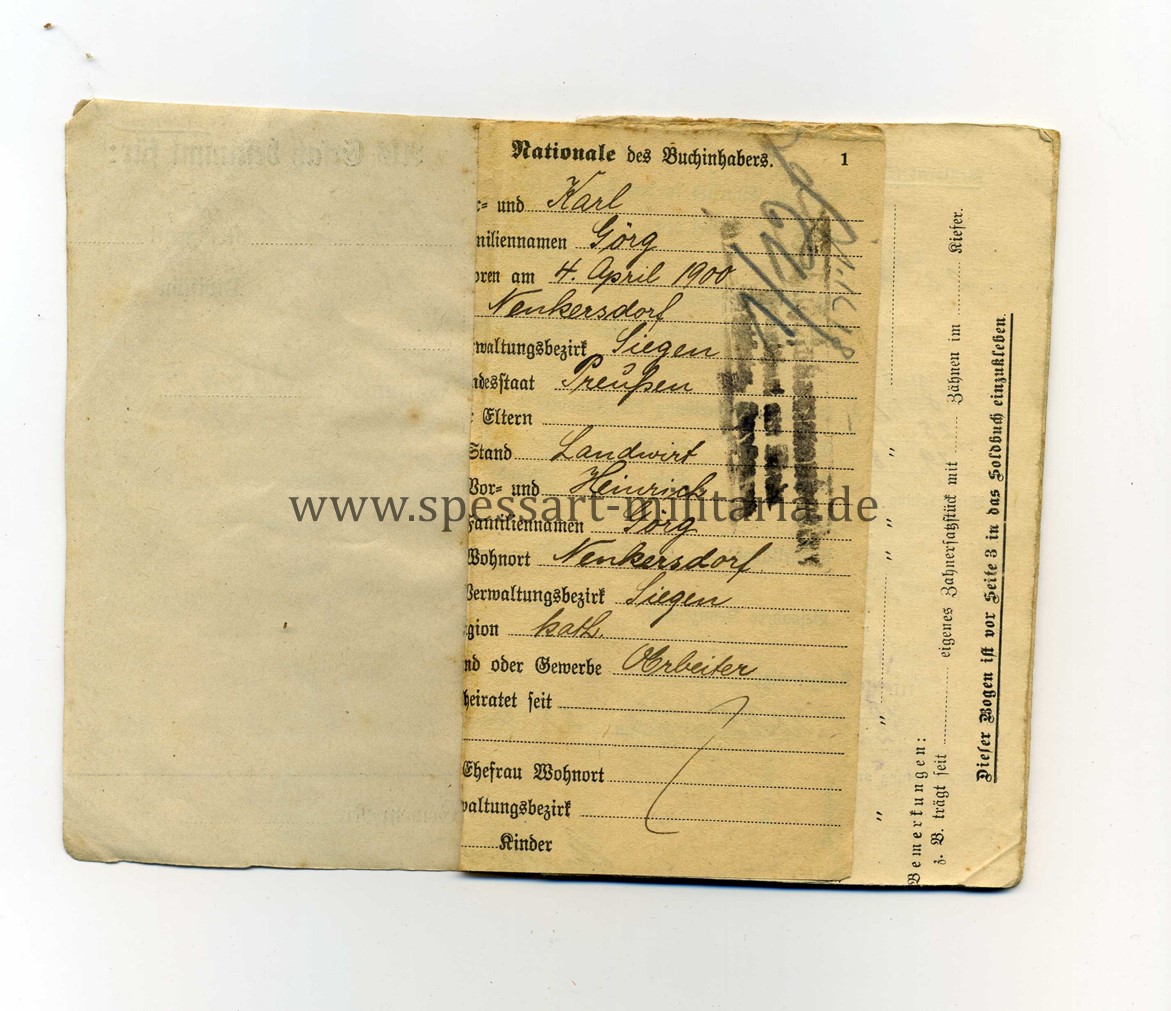 Nationale des Buchinhabers. 1
r= und Karl
miliennamen Görg
oren am 4. April 1900
Nenkersdorf
rwaltungsbezirk Siegen
ndesstaat Preußen
r Eltern
Stand Landwirt
Vor= und Heinrich
Familiennamen Görg
Wohnort Nenkersdorf
Verwaltungsbezirk Siegen
gion kath.
nd oder Gewerbe Arbeiter
heiratet seit
Ehefrau Wohnort
waltungsbezirk
Kinder
www.spessart-militaria.de
" " " " "
Bemerkungen:
z. B. trägt seit eigenes Zahnersatzstück mit Zähnen im Kiefer.
Dieser Bogen ist vor Seite 3 in das Soldbuch einzukleben.